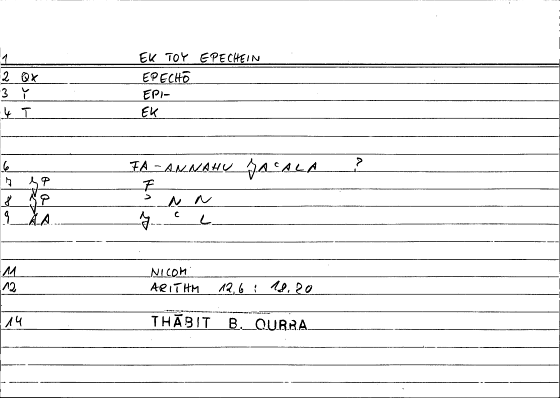 1 EK TOY EPECHEIN
2 QX EPECHŌ
3 Y EPI-
4 T EK
6 FA-ANNAHU ǧAʿALA ?
7 ǧP F
8 ǧP ʾ N N
9 AA ǧ ʿ L
11 NICOM
12 ARITHM 12,6 : 18.20
14 THĀBIT B. QURRA